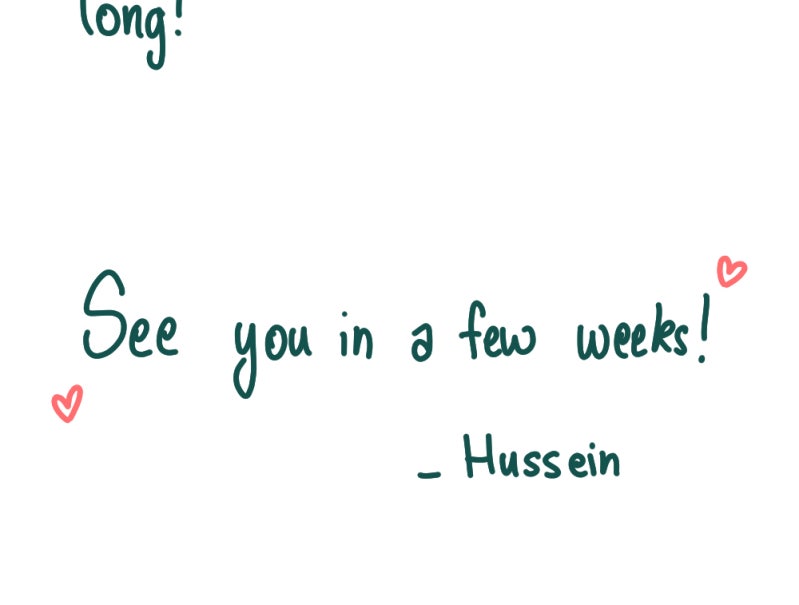 long!
See you in a few weeks!
- Hussein